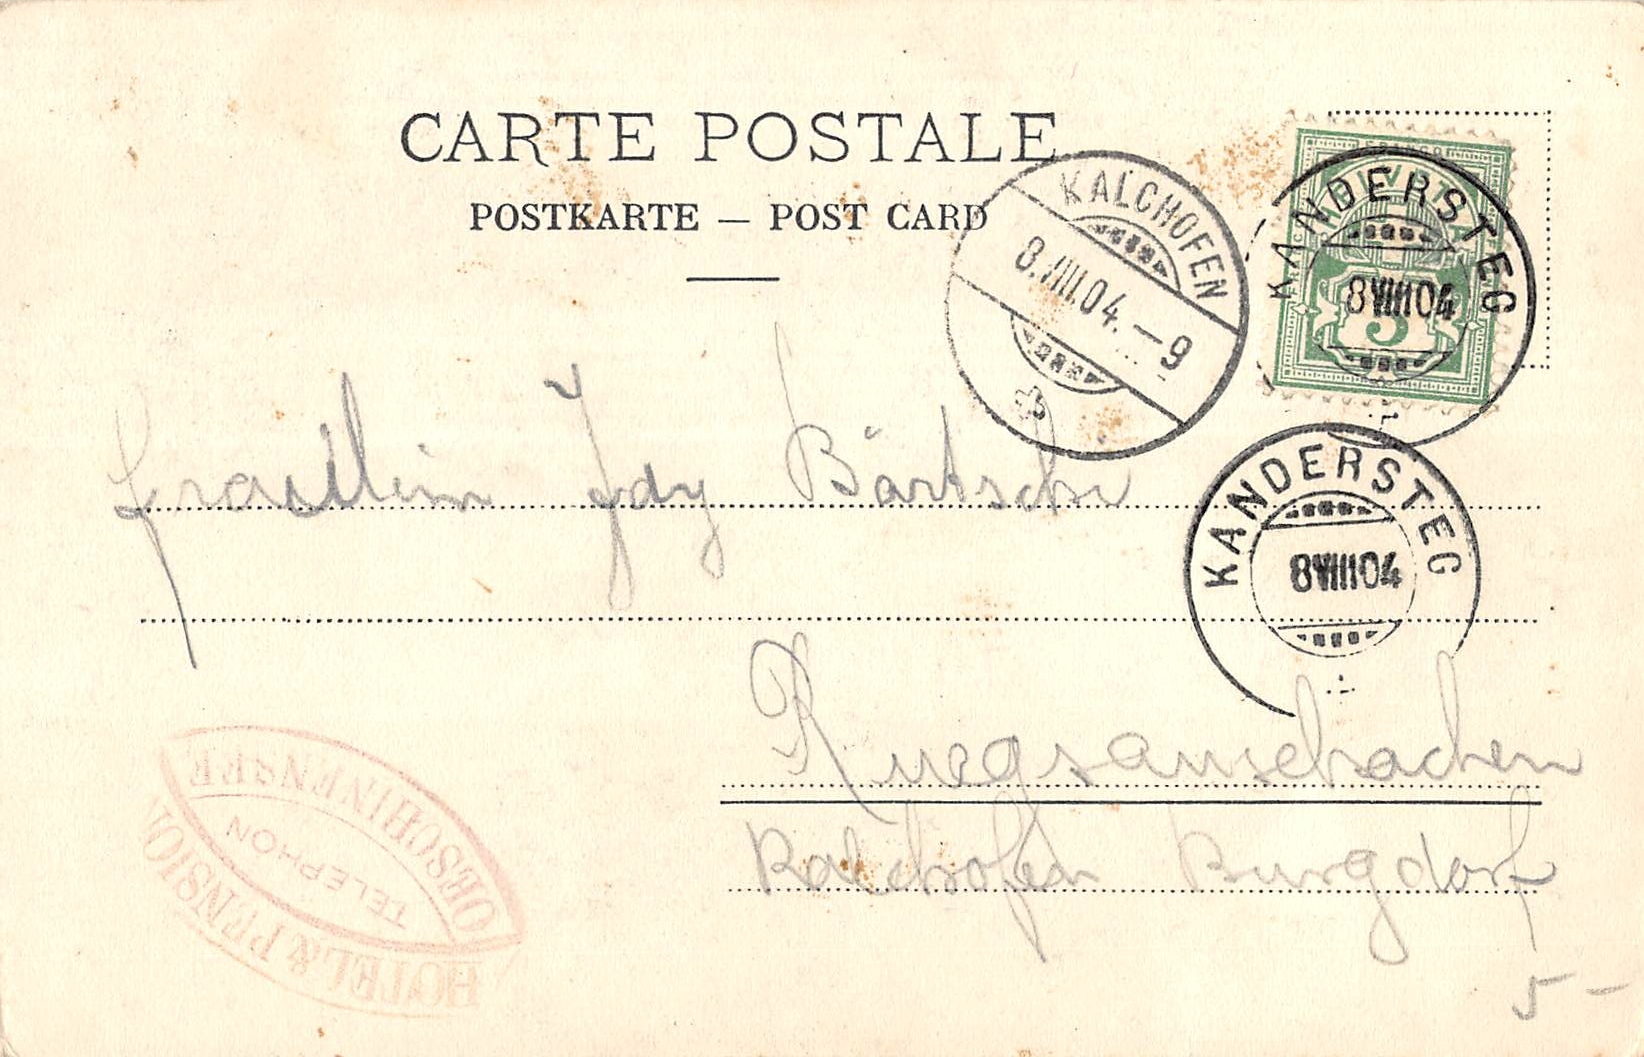 CARTE POSTALE
POSTKARTE — POST CARD
KALCHOFEN
8.VIII.04.—9
HELVETIA
5
KANDERSTEG
8VIII04
KANDERSTEG
8VIII04
Fraülein Idy Bärtschi
Ruegsauschachen
Kalchofen Burgdorf
HOTEL & PENSION
TELEPHON
OESCHINENSEE
5 -